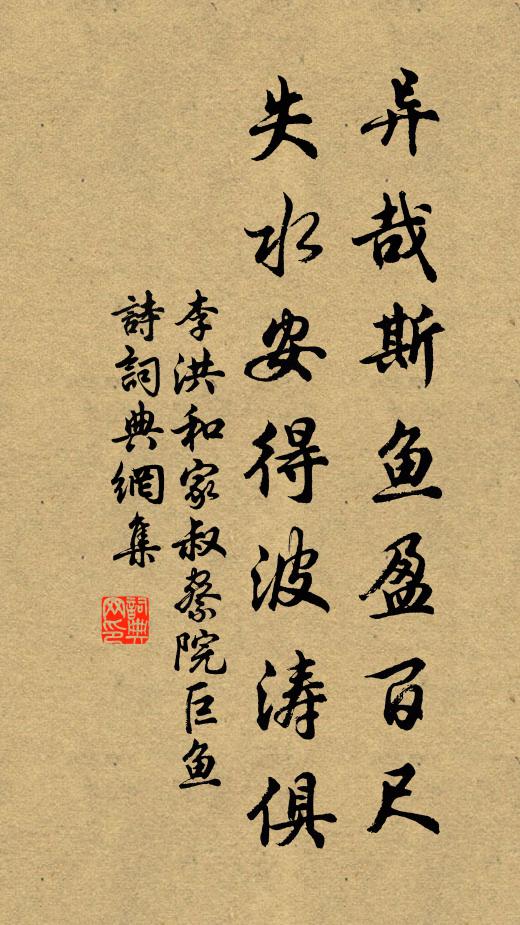 异哉斯鱼盈百尺
失水安得波涛俱
李洪和家叔察院巨鱼
詩詞典網集
詞典
网印